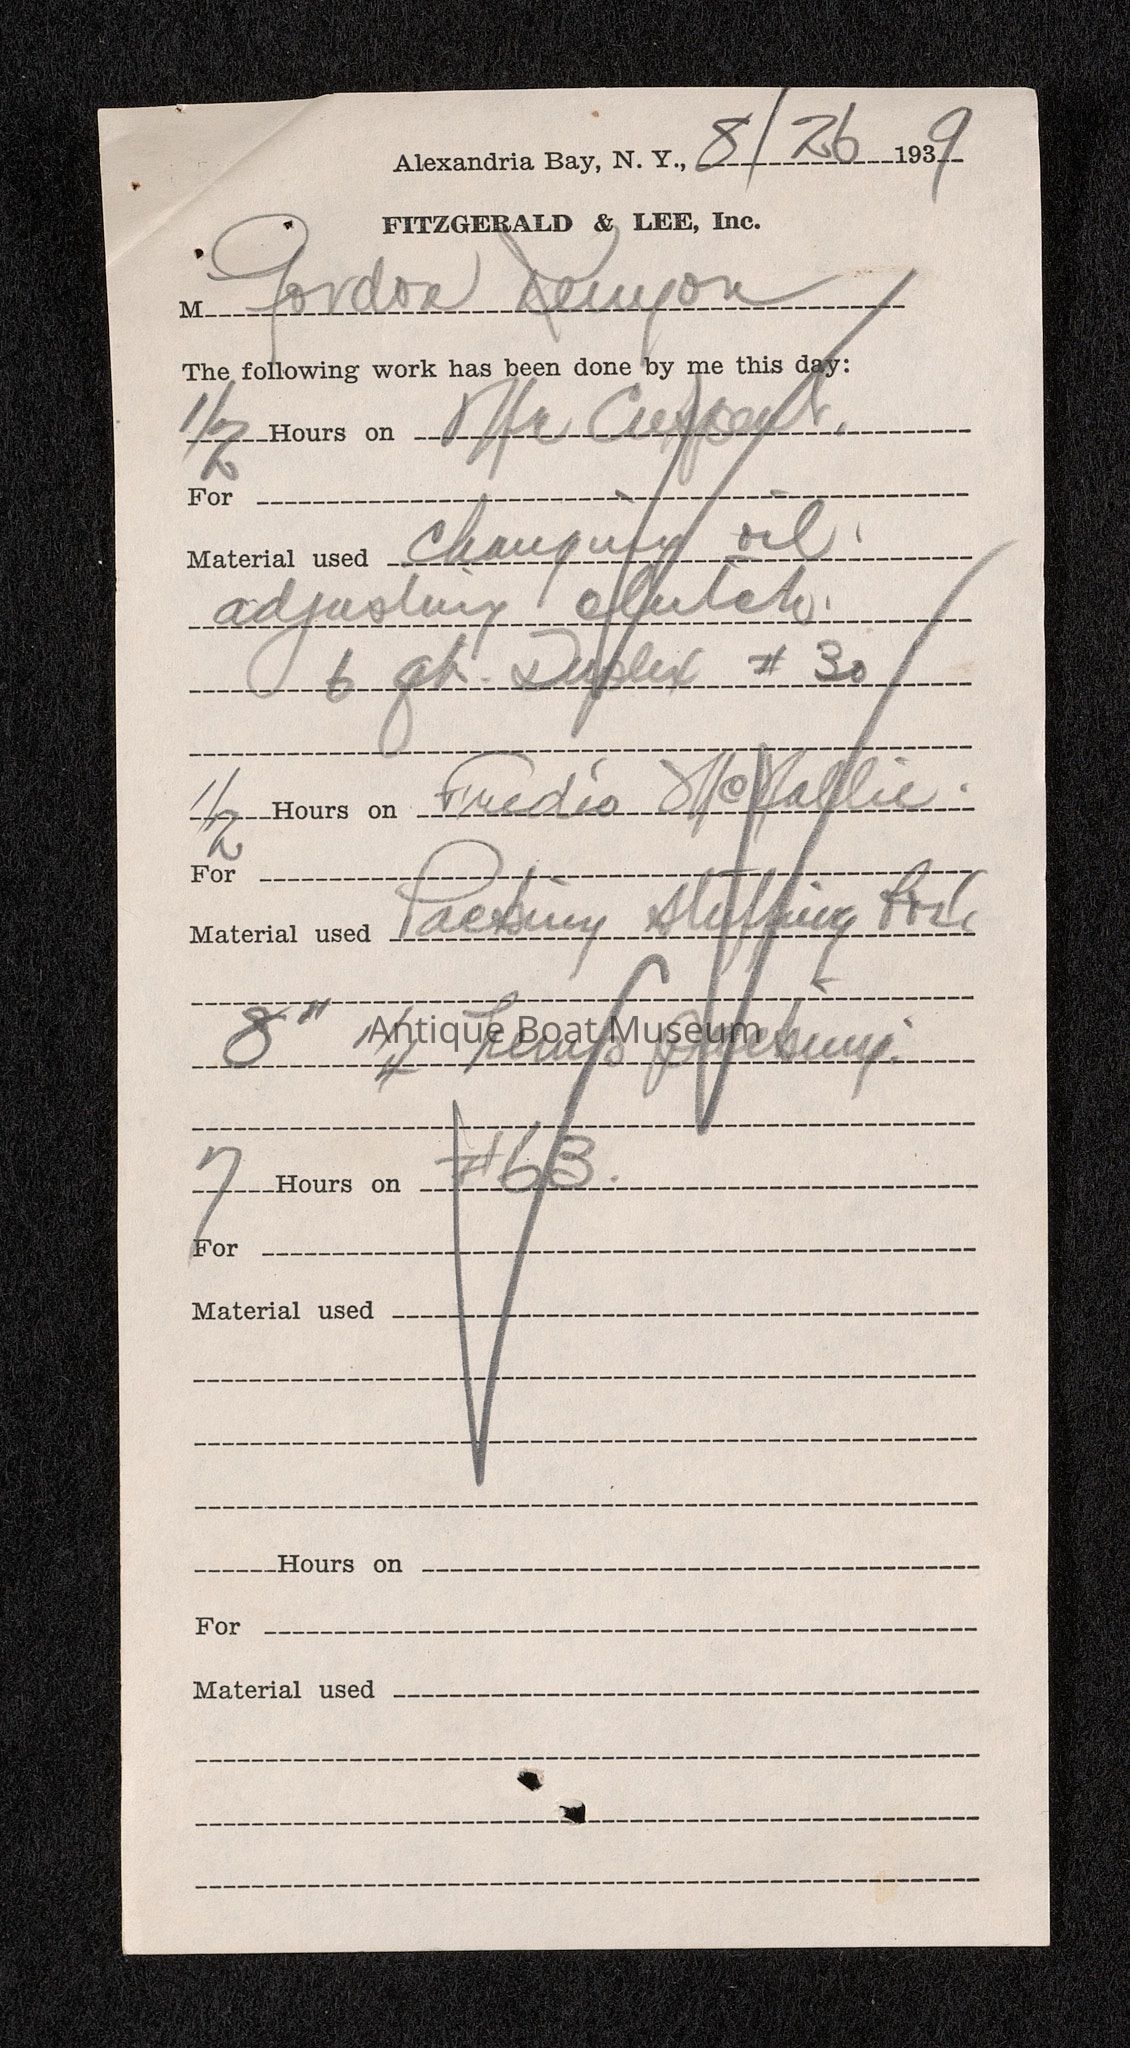 Alexandria Bay, N. Y., 8/26 1939
FITZGERALD & LEE, Inc.
M Gordon Kenyon
The following work has been done by me this day:
1/2 Hours on Mr
For
Material used changing oil.
adjusting clutch.
6 qt. Duplex # 30
1/2 Hours on McNallie.
For
Material used Packing stuffing box
8" 1/4 packing.
Antique Boat Museum
7 Hours on #63.
For
Material used
Hours on
For
Material used